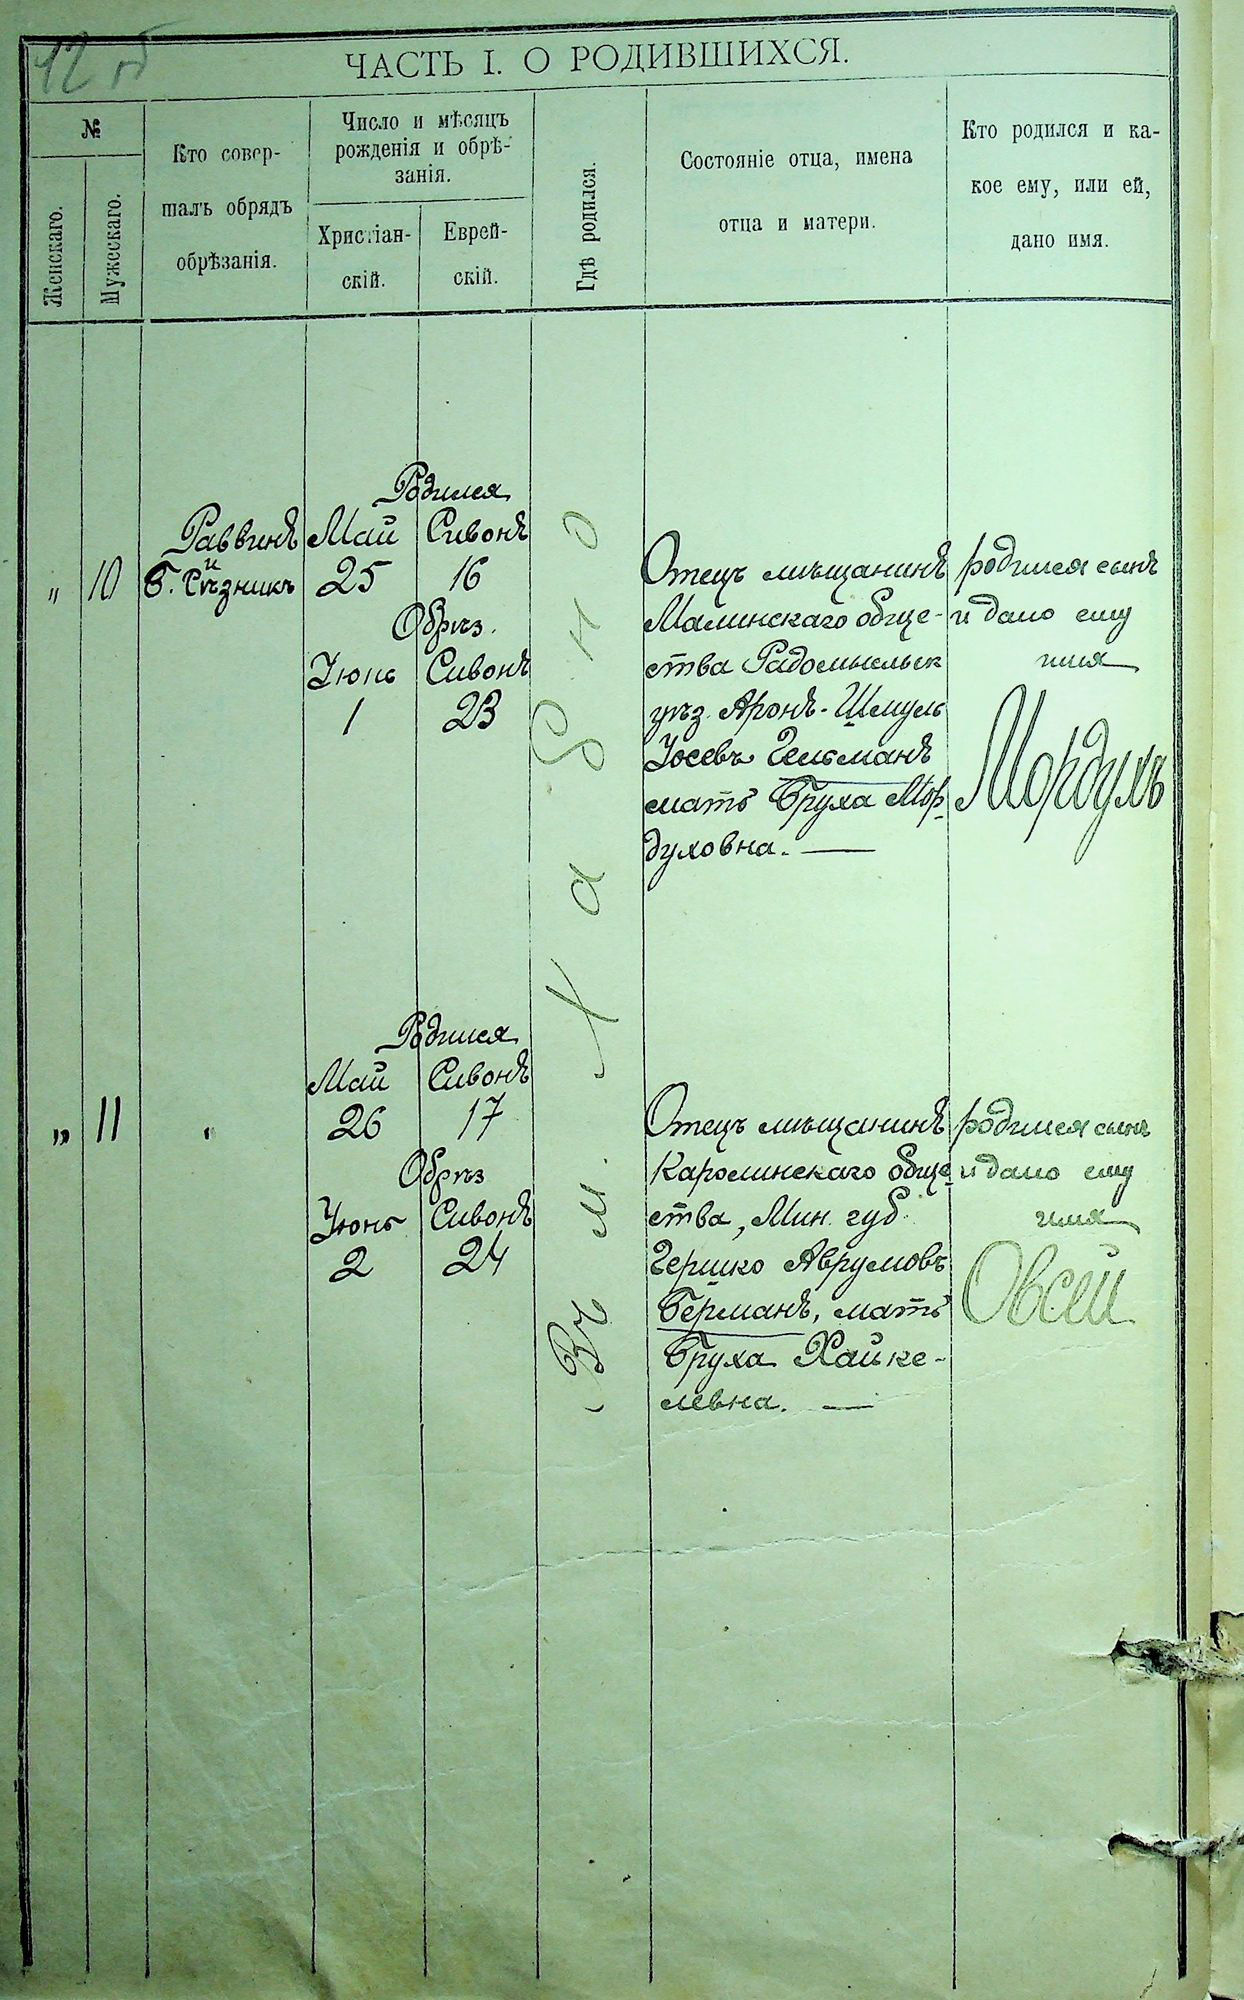 12 об
ЧАСТЬ I. О РОДИВШИХСЯ.
№
Женскаго.
Мужескаго.
Кто совер-
шалъ обрядъ
обрѣзанія.
Число и мѣсяцъ
рожденія и обрѣ-
занія.
Христіан-
скій.
Еврей-
скій.
Гдѣ родился.
Состояніе отца, имена
отца и матери.
Кто родился и ка-
кое ему, или ей,
дано имя.
Родился
Раввинъ Май Сивонъ
и
" 10 Б. Рѣзникъ 25 16
Обрѣз.
Іюнь Сивонъ
1 23
Отецъ мѣщанинъ
Малинскаго обще-
ства Радомысльск
уѣз. Аронъ-Шмуль
Іосевъ Гельманъ
мать Бруха Мор-
духовна. —
родился сынъ
и дано ему
имя
Мордухъ
Въ м. Хабно
Родился
Май Сивонъ
" 11 " 26 17
Обрѣз
Іюнь Сивонъ
2 24
Отецъ мѣщанинъ
Каролинскаго обще-
ства, Мин. губ.
Гершко Аврумовъ
Берманъ, мать
Бруха Хайке-
левна. —
родился сынъ
и дано ему
имя
Овсей